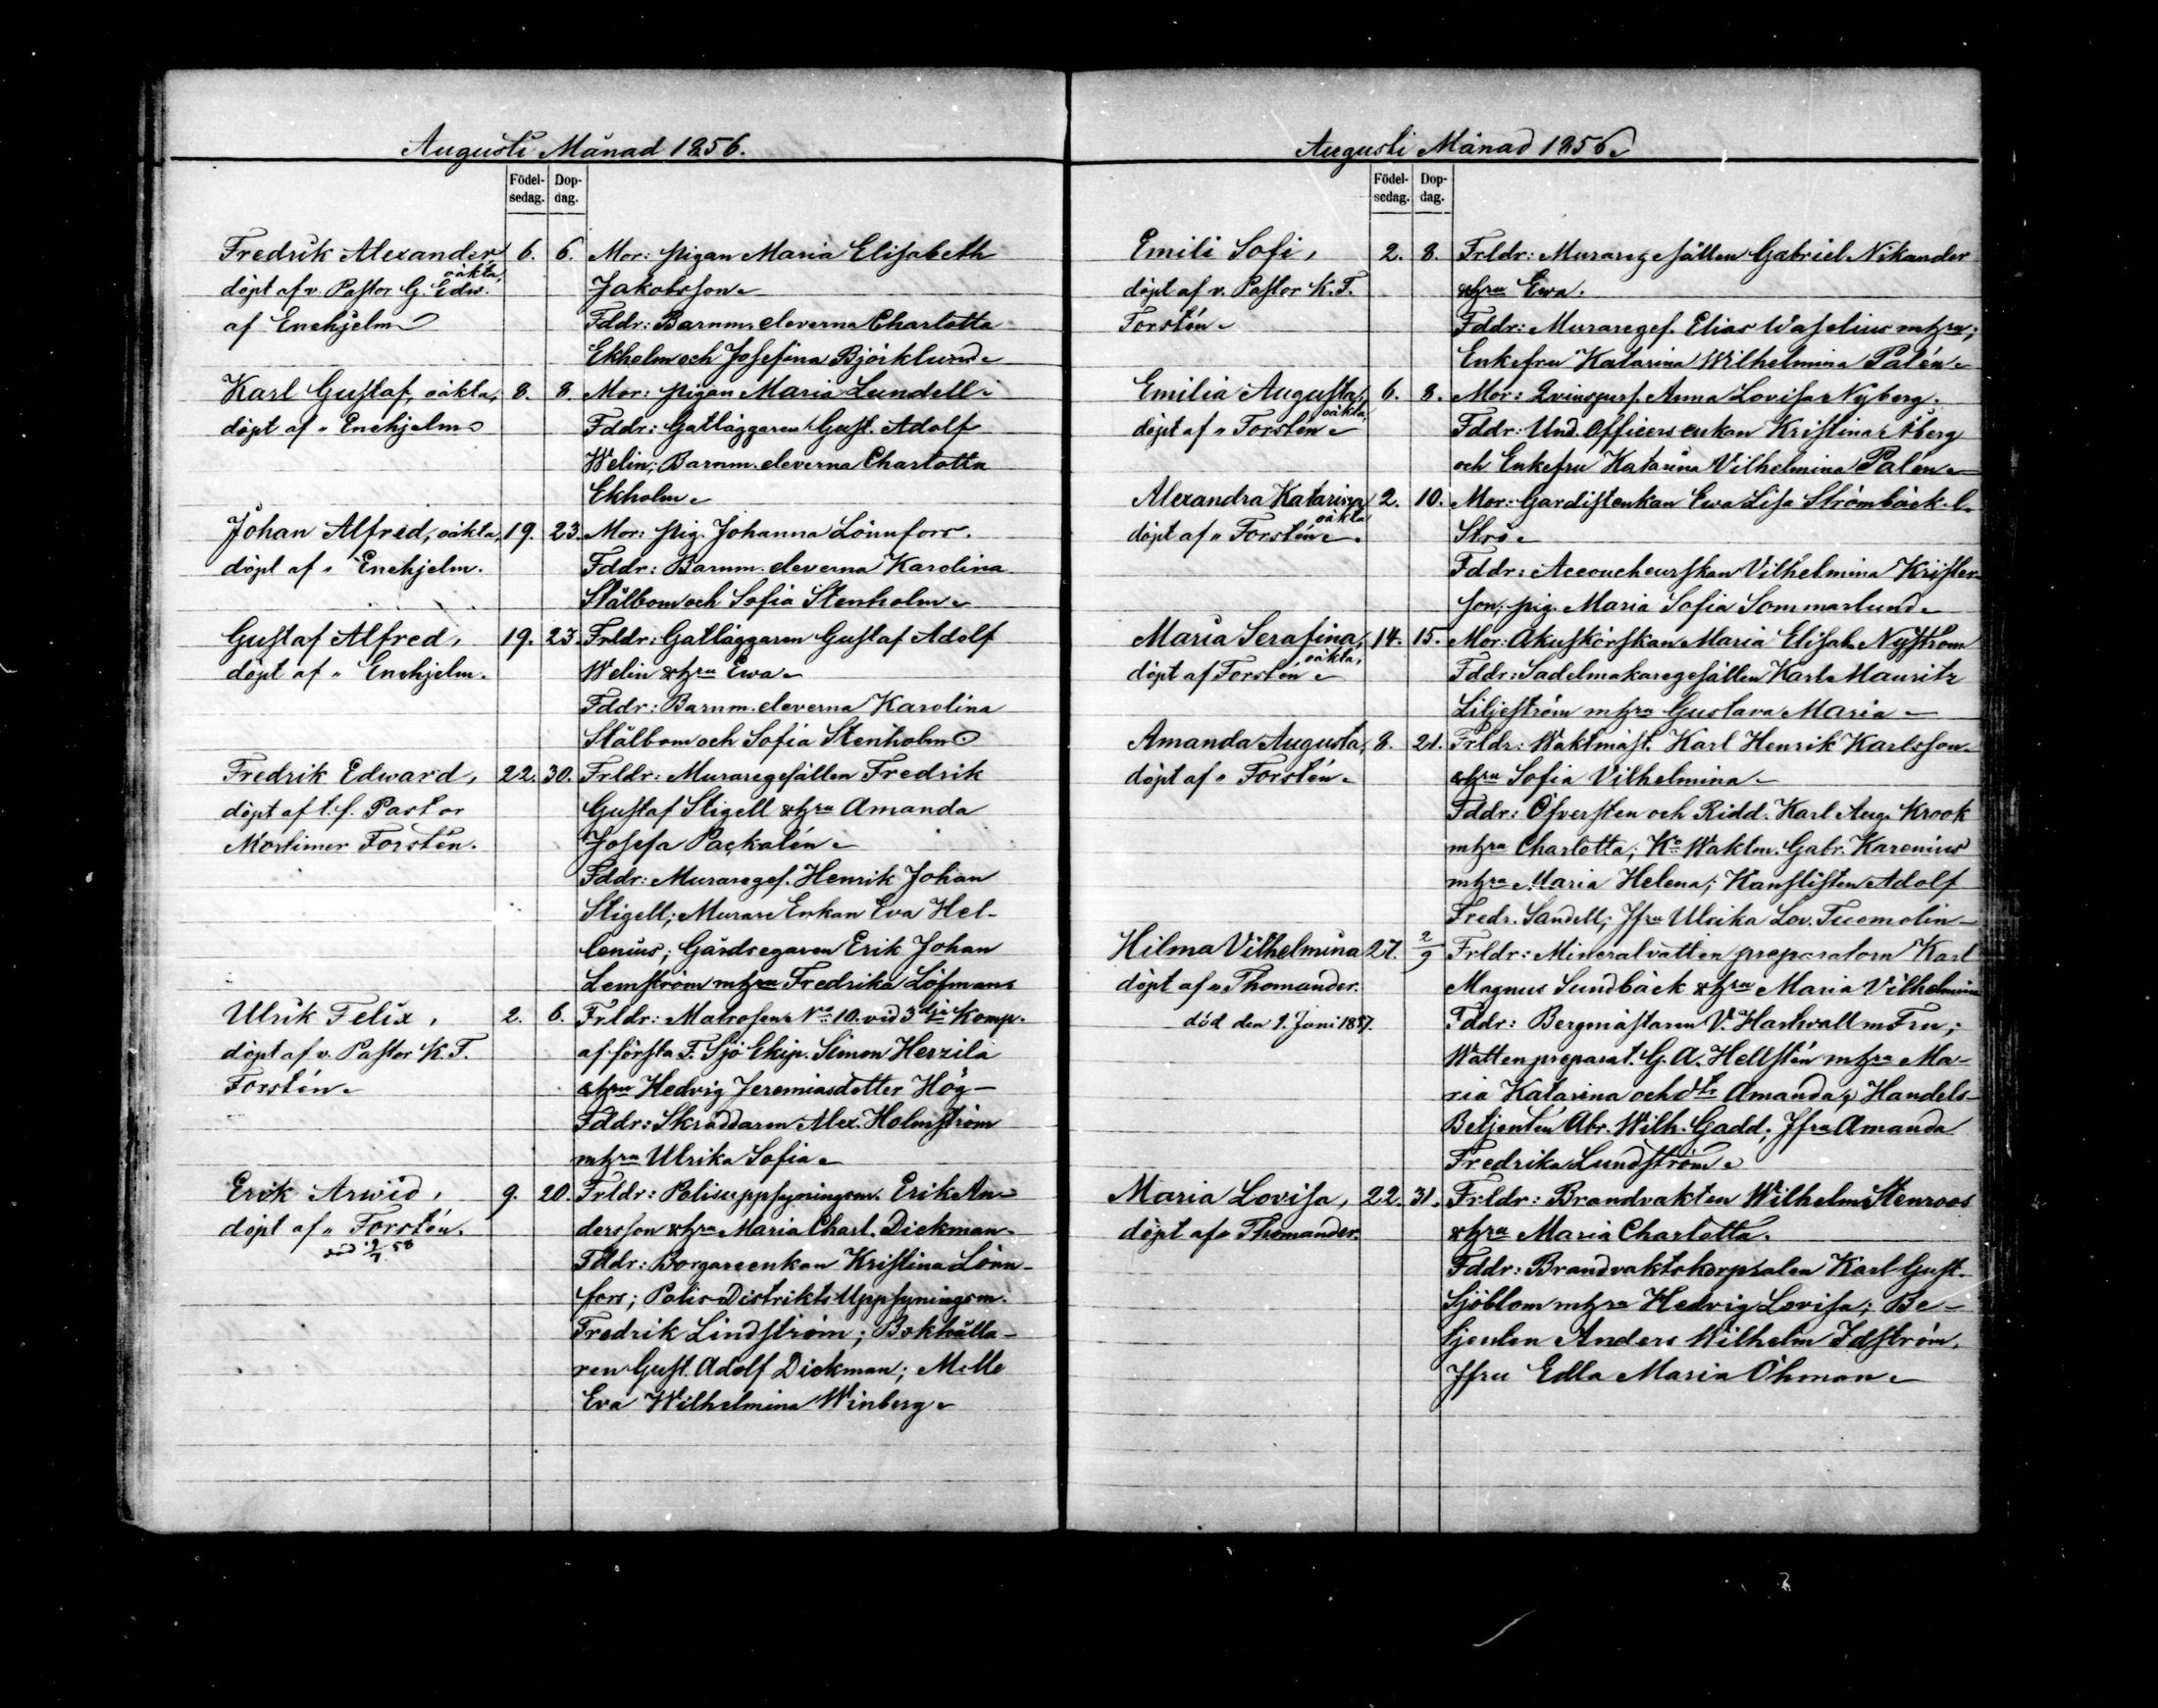 Augusti Månad 1856.
Födel- Dop-
sedag. dag.
Fredrik Alexander 6. 6. Mor: pigan Maria Elisabeth
oäkta
döpt af v. Pastor G. Edw. Jakobsson
af Enehjelm Fddr: Barnm. eleverna Charlotta
Ekholm och Josefina Björklund
Karl Gustaf, oäkta, 8. 8. Mor: pigan Maria Lundell
döpt af " Enehjelm Fddr: Gatläggaren Gust. Adolf
Welin; Barnm. eleverna Charlotta
Ekholm
Johan Alfred, oäkta, 19. 23. Mor: pig. Johanna Lönnfors.
döpt af " Enehjelm. Fddr: Barnm. eleverna Karolina
Stålbom och Sofia Stenholm
Gustaf Alfred, 19. 23. Frldr: Gatläggaren Gustaf Adolf
döpt af " Enehjelm. Welin & hru Ewa
Fddr: Barnm. eleverna Karolina
Stålbom och Sofia Stenholm
Fredrik Edward, 22. 30. Frldr: Muraregesällen Fredrik
döpt af t.f. Pastor Gustaf Stigell & hru Amanda
Mortimer Forstén. Josefa Packalén
Fddr: Muraregef. Henrik Johan
Stigell; Murare Enkan Eva Hel-
lenius; Gårdsegaren Erik Johan
Lemström m hru Fredrika Löfman
Ulrik Felix, 2. 6. Frldr: Matrosen No 10. vid 3dje Komp.
döpt af v. Pastor K. T. af första F. Sjö Ekip. Simon Herzila
Forstén & hru Hedvig Jeremiasdotter Hög-
Fddr: Skräddaren Alex. Holmström
m hru Ulrika Sofia
Erik Arwid, 9. 20. Frldr: Polisuppsyningsm. Erik An-
döpt af " Forstén. dersson & hru Maria Charl. Dickman
död 9/7 58 Fddr: Borgareenkan Kristina Lönn-
fors; Polis Distrikts Uppsyningsm.
Fredrik Lindström; Bokhålla-
ren Gust. Adolf Dickman; M:lle
Eva Wilhelmina Winberg
Augusti Månad 1856
Födel- Dop-
sedag. dag.
Emili Sofi, 2. 8. Frldr: Muraregesällen Gabriel Nikander
döpt af v. Pastor K. T. & hru Ewa.
Forstén Fddr: Muraregef. Elias Waselius m hru;
Enkefru Katarina Wilhelmina Palén
Emilia Augusta, 6. 8. Mor: Qvinspers. Anna Lovisa Nyberg.
oäkta
döpt af " Forstén Fddr: Und. Officers enkan Kristina Åberg
och Enkefru Katarina Vilhelmina Palén
Alexandra Katarina 2. 10. Mor: Gardistenkan Ewa Lisa Strömbäck l.
oäkta
döpt af " Forstén. Strö
Fddr: Accoucheurskan Vilhelmina Krister-
son, pig. Maria Sofia Sommarlund
Maria Serafina, 14. 15. Mor: Akuskörskan Maria Elisab. Nyström
oäkta,
döpt af Forstén Fddr: Sadelmakaregesällen Karl Mauritz
Liljeström m hru Gustava Maria
Amanda Augusta, 8. 21. Frldr: Waktmäst. Karl Henrik Karlsson
döpt af " Forstén. & hru Sofia Vilhelmina
Fddr: Öfversten och Ridd. Karl Aug. Krook
m hru Charlotta; Ko Waktm. Gabr. Karenius
m hru Maria Helena; Kanslisten Adolf
Fredr. Sandell; Jfru Ulrika Lov. Tuomolin
Hilma Vilhelmina 27. 2/9 Frldr: Mineralvatten preparatorn Karl
döpt af " Thomander. Magnus Sundbäck & hru Maria Vilhelmina
död den 9. Juni 1857. Fddr: Bergmästaren V. Hartwall m Fru;
Watten preparat. G. A. Hellstén m hru Ma-
ria Katarina och dtr Amanda; Handels-
Betjenten Abr. Wilh. Gadd; Jfru Amanda
Fredrika Lundström
Maria Lovisa, 22. 31. Frldr: Brandvakten Wilhelm Stenroos
döpt af " Thomander. & hru Maria Charlotta.
Fddr: Brandvaktskorpralen Karl Gust.
Sjöblom m hru Hedvig Lovisa; Be-
tjenten Anders Wilhelm Idström.
Jfru Edla Maria Öhman